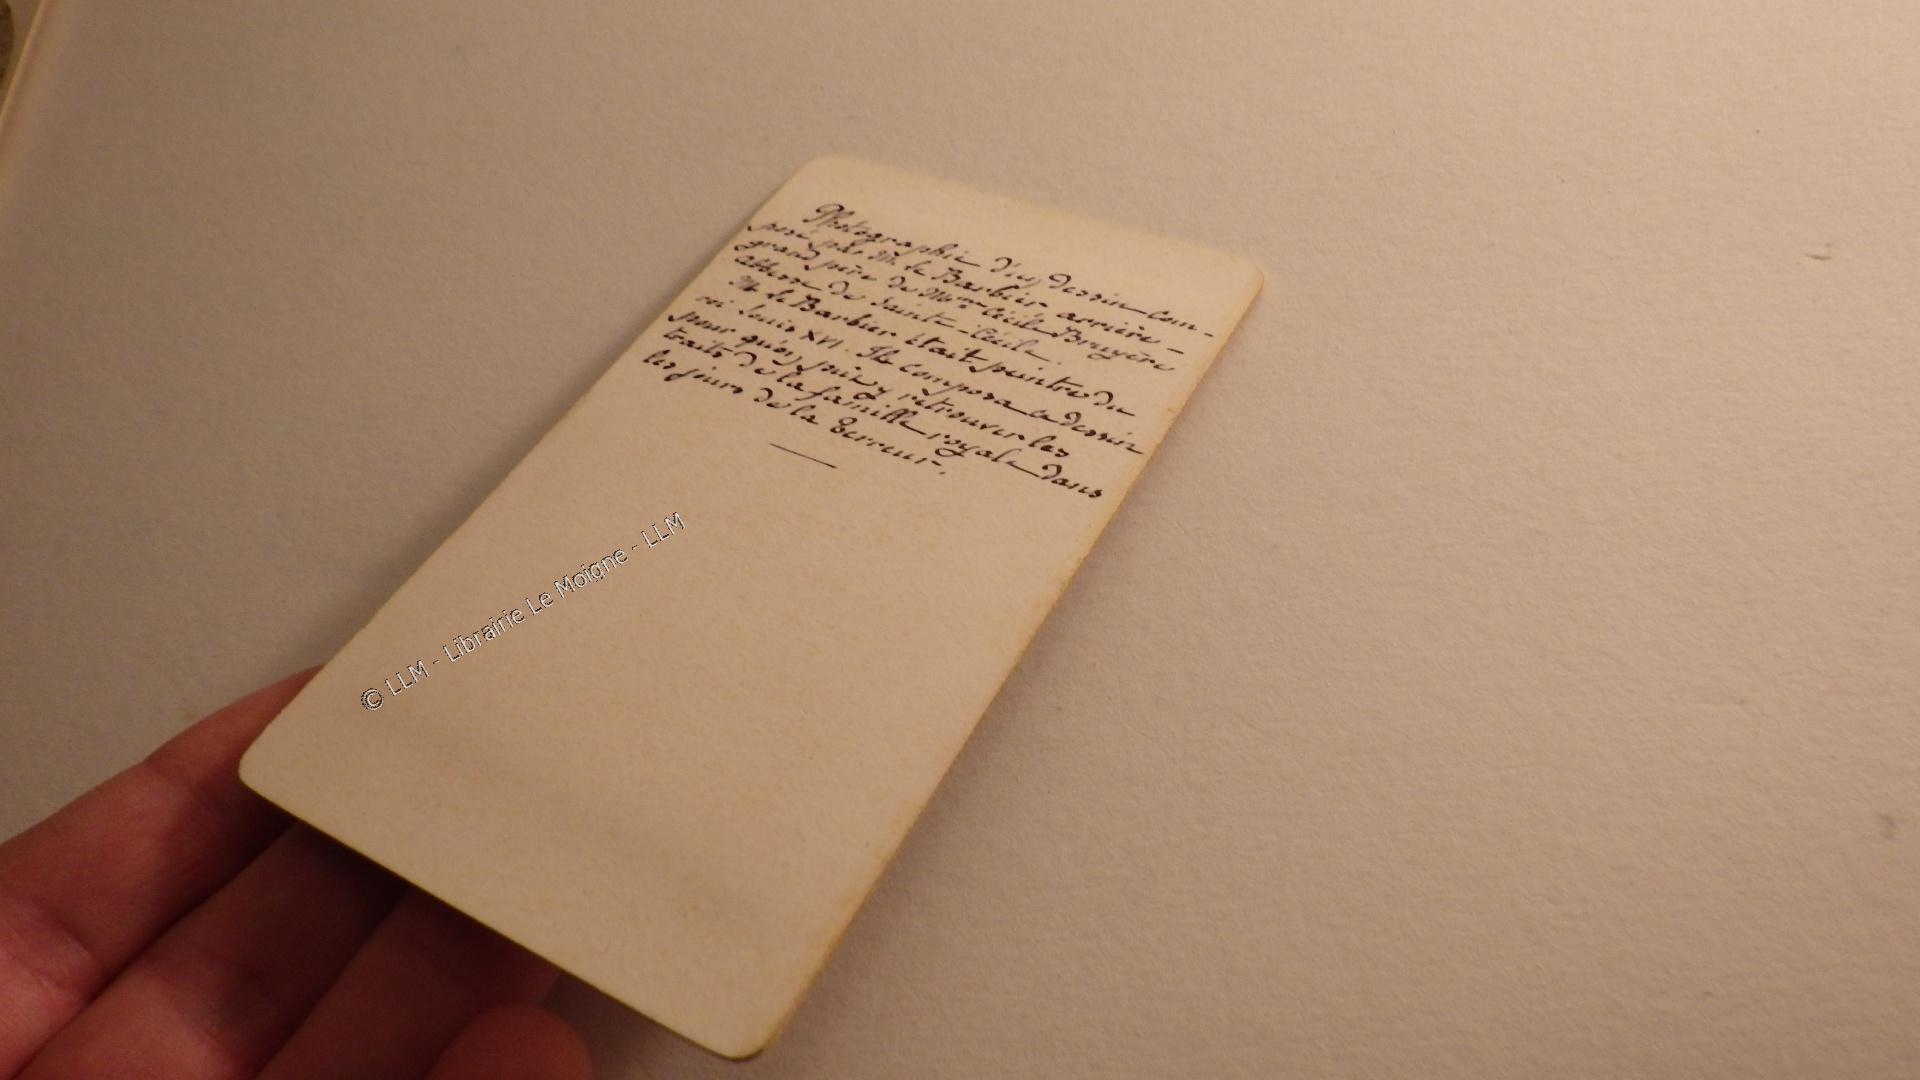 Photographie d'un dessin com-
posé par M. le Barbier arrière-
grand père de Mme Cécile Bruyère
abbesse de Sainte-Cécile.
M. le Barbier était peintre du
roi Louis XVI. Il composa ce dessin
pour qu'on puisse y retrouver les
traits de la famille royale dans
les jours de la Terreur.
© LLM - Librairie Le Moigne - LLM